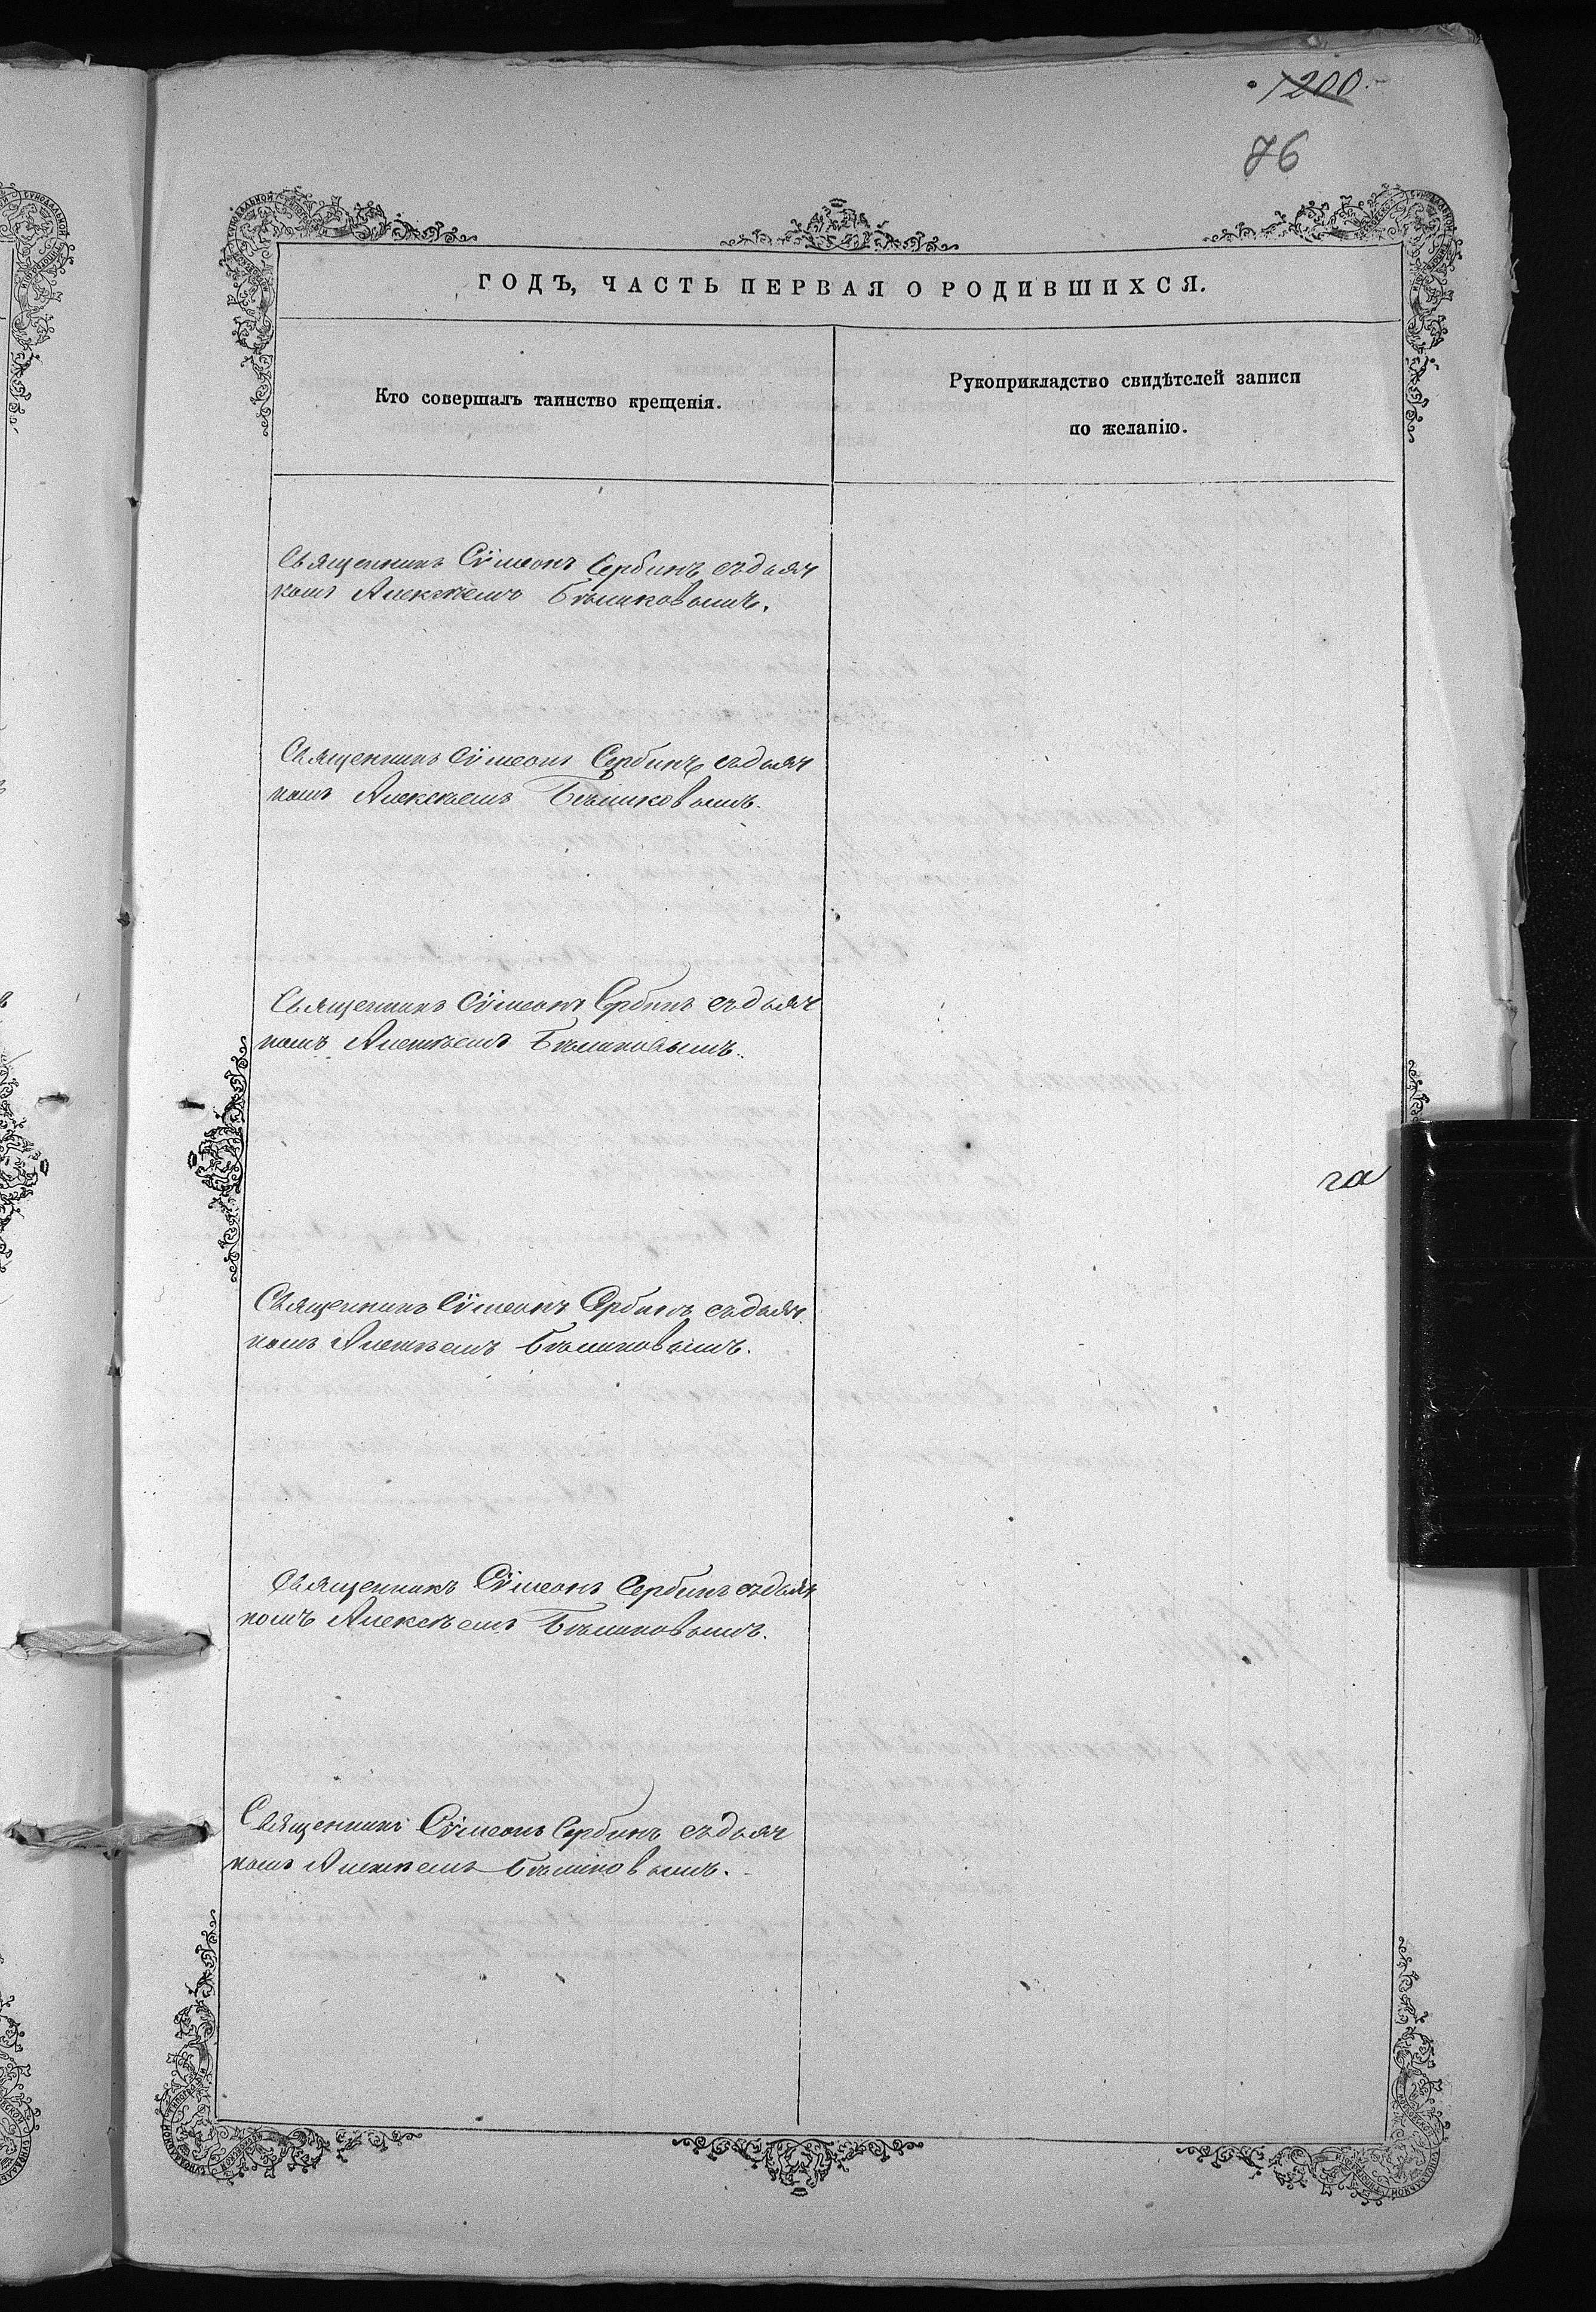 1200.
76
ГОДЪ, ЧАСТЬ ПЕРВАЯ О РОДИВШИХСЯ.
Кто совершалъ таинство крещенія.
Рукоприкладство свидѣтелей записи
по желанію.
Священникъ Сѵмеонъ Сербинъ съ дьяч
комъ Алексѣемъ Бѣликовымъ.
Священникъ Сѵмеонъ Сербинъ съ дьяч
комъ Алексѣемъ Бѣликовымъ.
Священникъ Сѵмеонъ Сербинъ съ дьяч
комъ Алексѣемъ Бѣликовымъ.
га
Священникъ Сѵмеонъ Сербинъ съ дьяч
комъ Алексѣемъ Бѣликовымъ.
Священникъ Сѵмеонъ Сербинъ съ дьяч
комъ Алексѣемъ Бѣликовымъ.
Священникъ Сѵмеонъ Сербинъ съ дьяч
комъ Алексѣемъ Бѣликовымъ.